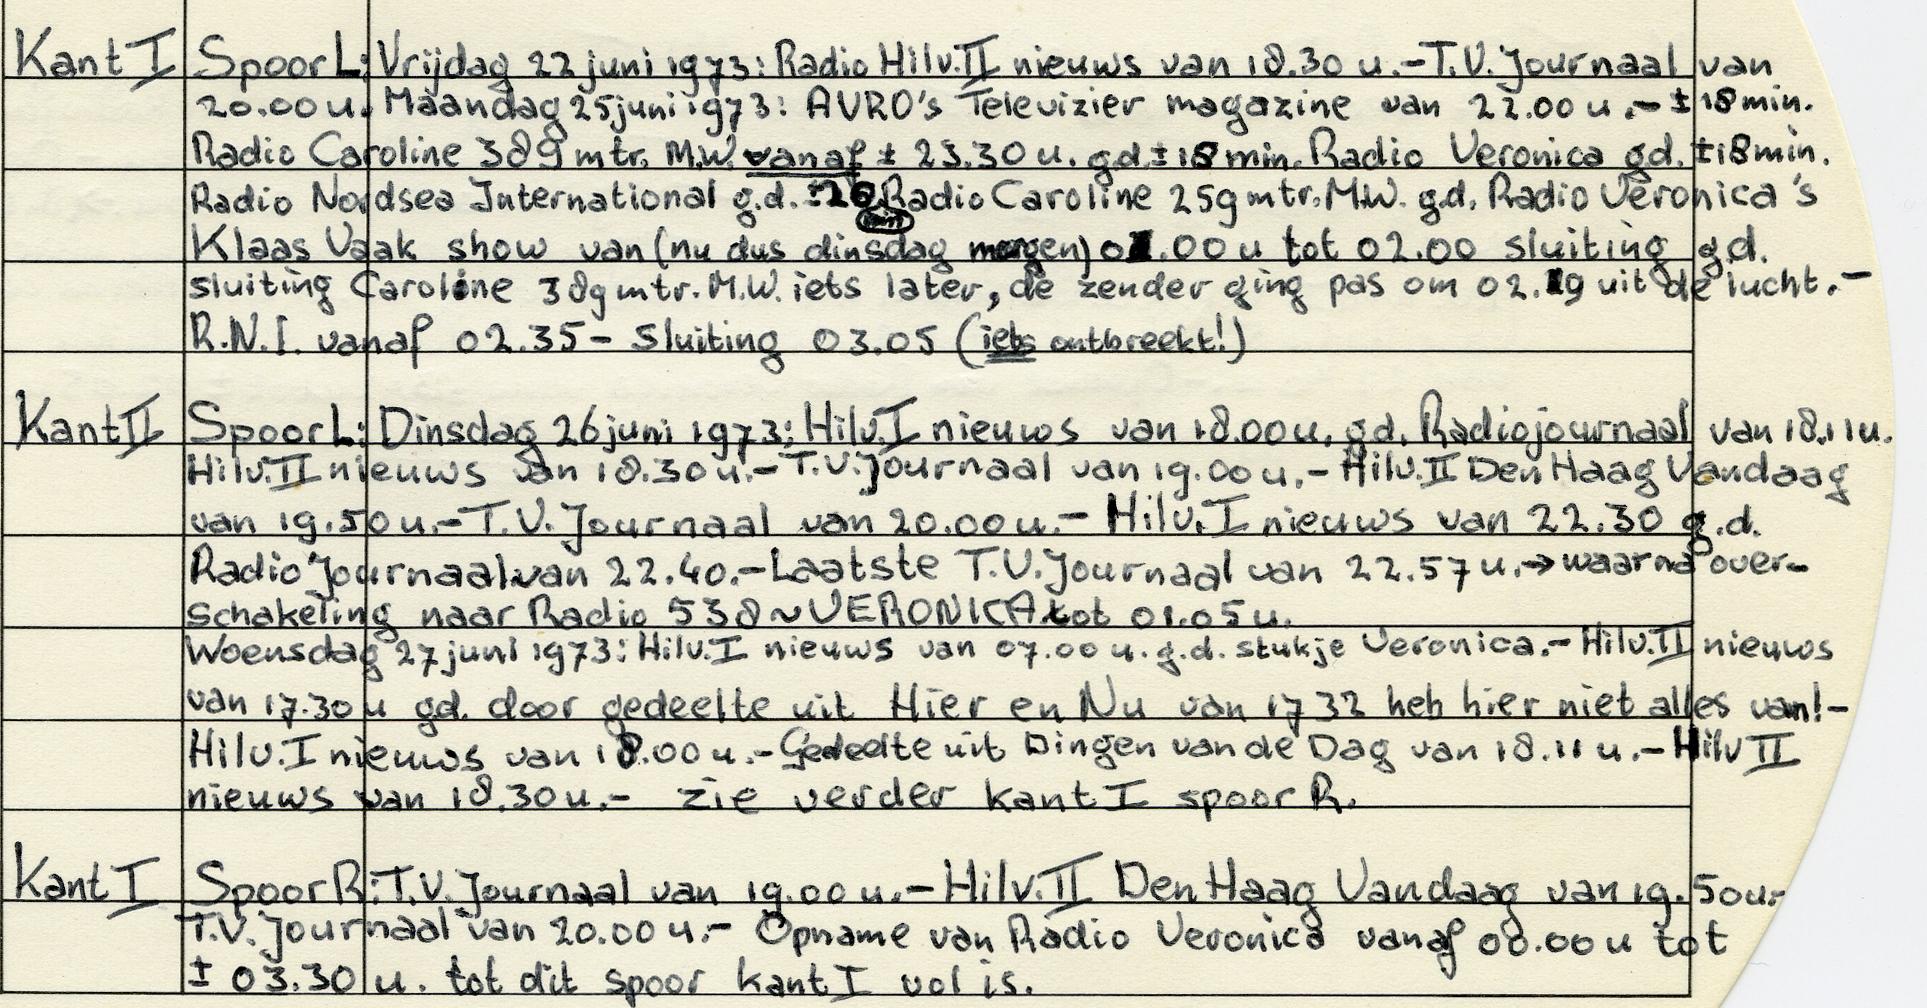 Kant I Spoor L: Vrijdag 22 juni 1973: Radio Hilv. II nieuws van 18.30 u.- T.V. Journaal van
20.00 u. Maandag 25 juni 1973: AVRO's Televizier magazine van 22.00 u.- ± 18 min.
Radio Caroline 389 mtr. M.W. vanaf ± 23.30 u. g.d. ± 18 min. Radio Veronica gd. ± 18 min.
Radio Nordsea International g.d. ± 26 min Radio Caroline 259 mtr. M.W. g.d. Radio Veronica's
Klaas Vaak show van (nu dus dinsdag morgen) 01.00 u tot 02.00 sluiting g.d.
sluiting Caroline 389 mtr. M.W. iets later, de zender ging pas om 02.19 uit de lucht.-
R.N.I. vanaf 02.35 - Sluiting 03.05 (iets ontbreekt!)
Kant II Spoor L: Dinsdag 26 juni 1973: Hilv. I nieuws van 18.00 u. gd. Radiojournaal van 18.11 u.
Hilv. II nieuws van 18.30 u.- T.V. Journaal van 19.00 u.- Hilv. II Den Haag Vandaag
van 19.50 u.- T.V. Journaal van 20.00 u.- Hilv. I nieuws van 22.30 g.d.
Radio Journaal van 22.40.- Laatste T.V. Journaal van 22.57 u. → waarna over-
schakeling naar Radio 538 ~ VERONICA tot 01.05 u.
Woensdag 27 juni 1973: Hilv. I nieuws van 07.00 u. g.d. stukje Veronica.- Hilv. II nieuws
van 17.30 u gd. door gedeelte uit Hier en Nu van 17 32 heb hier niet alles van!-
Hilv. I nieuws van 18.00 u.- Gedeelte uit Dingen van de Dag van 18.11 u.- Hilv II
nieuws van 18.30 u.- zie verder kant I spoor R.
Kant I Spoor R: T.V. Journaal van 19.00 u.- Hilv. II Den Haag Vandaag van 19.50 u.-
T.V. Journaal van 20.00 u.- Opname van Radio Veronica vanaf 00.00 u tot
± 03.30 u. tot dit spoor kant I vol is.